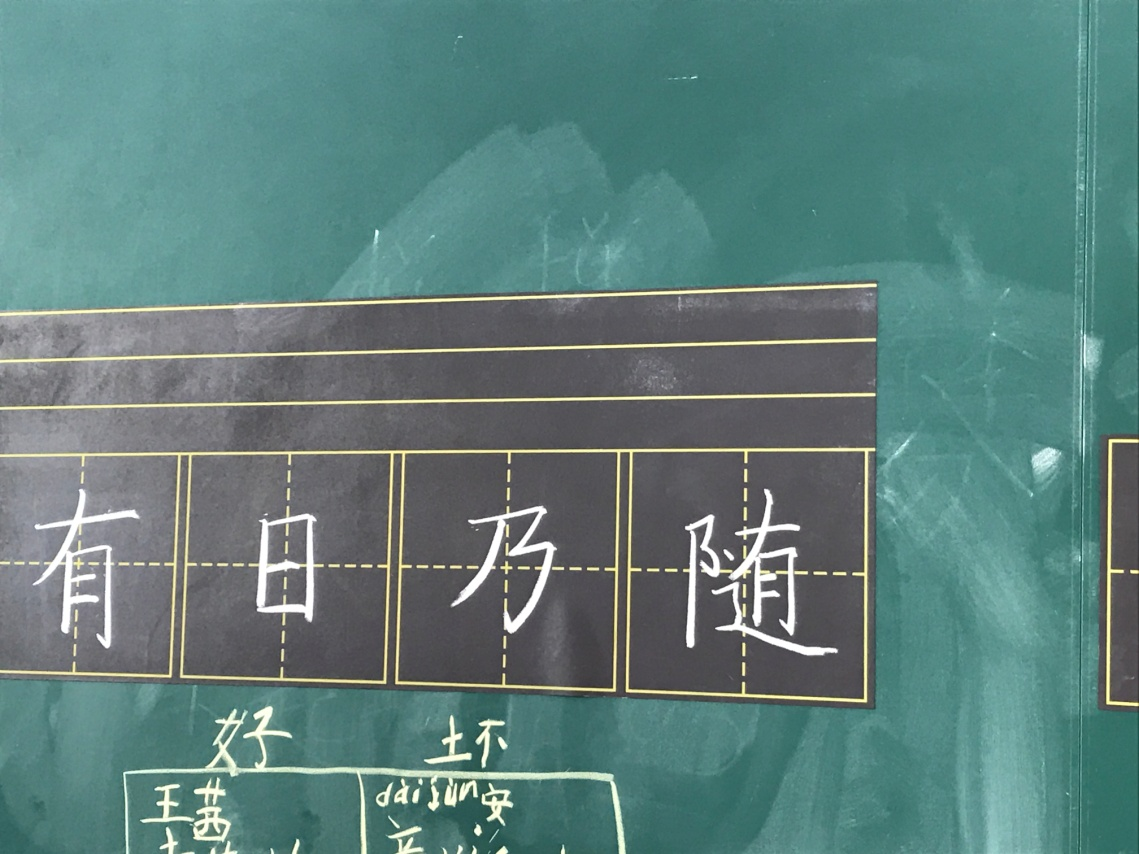 有日乃随
好 坏
王茜 daijun安